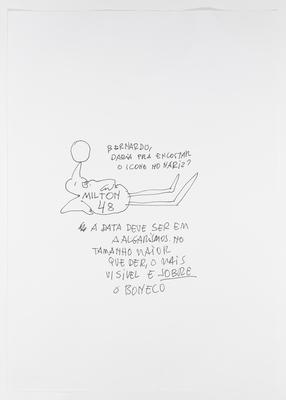 BERNARDO,
DARIA PRA ENCOSTAR
O ICONE NO NARIZ?
MILTON
48
A DATA DEVE SER EM
ALGARISMOS NO
TAMANHO MAIOR
QUE DER, O MAIS
VISIVEL E SOBRE
O BONECO